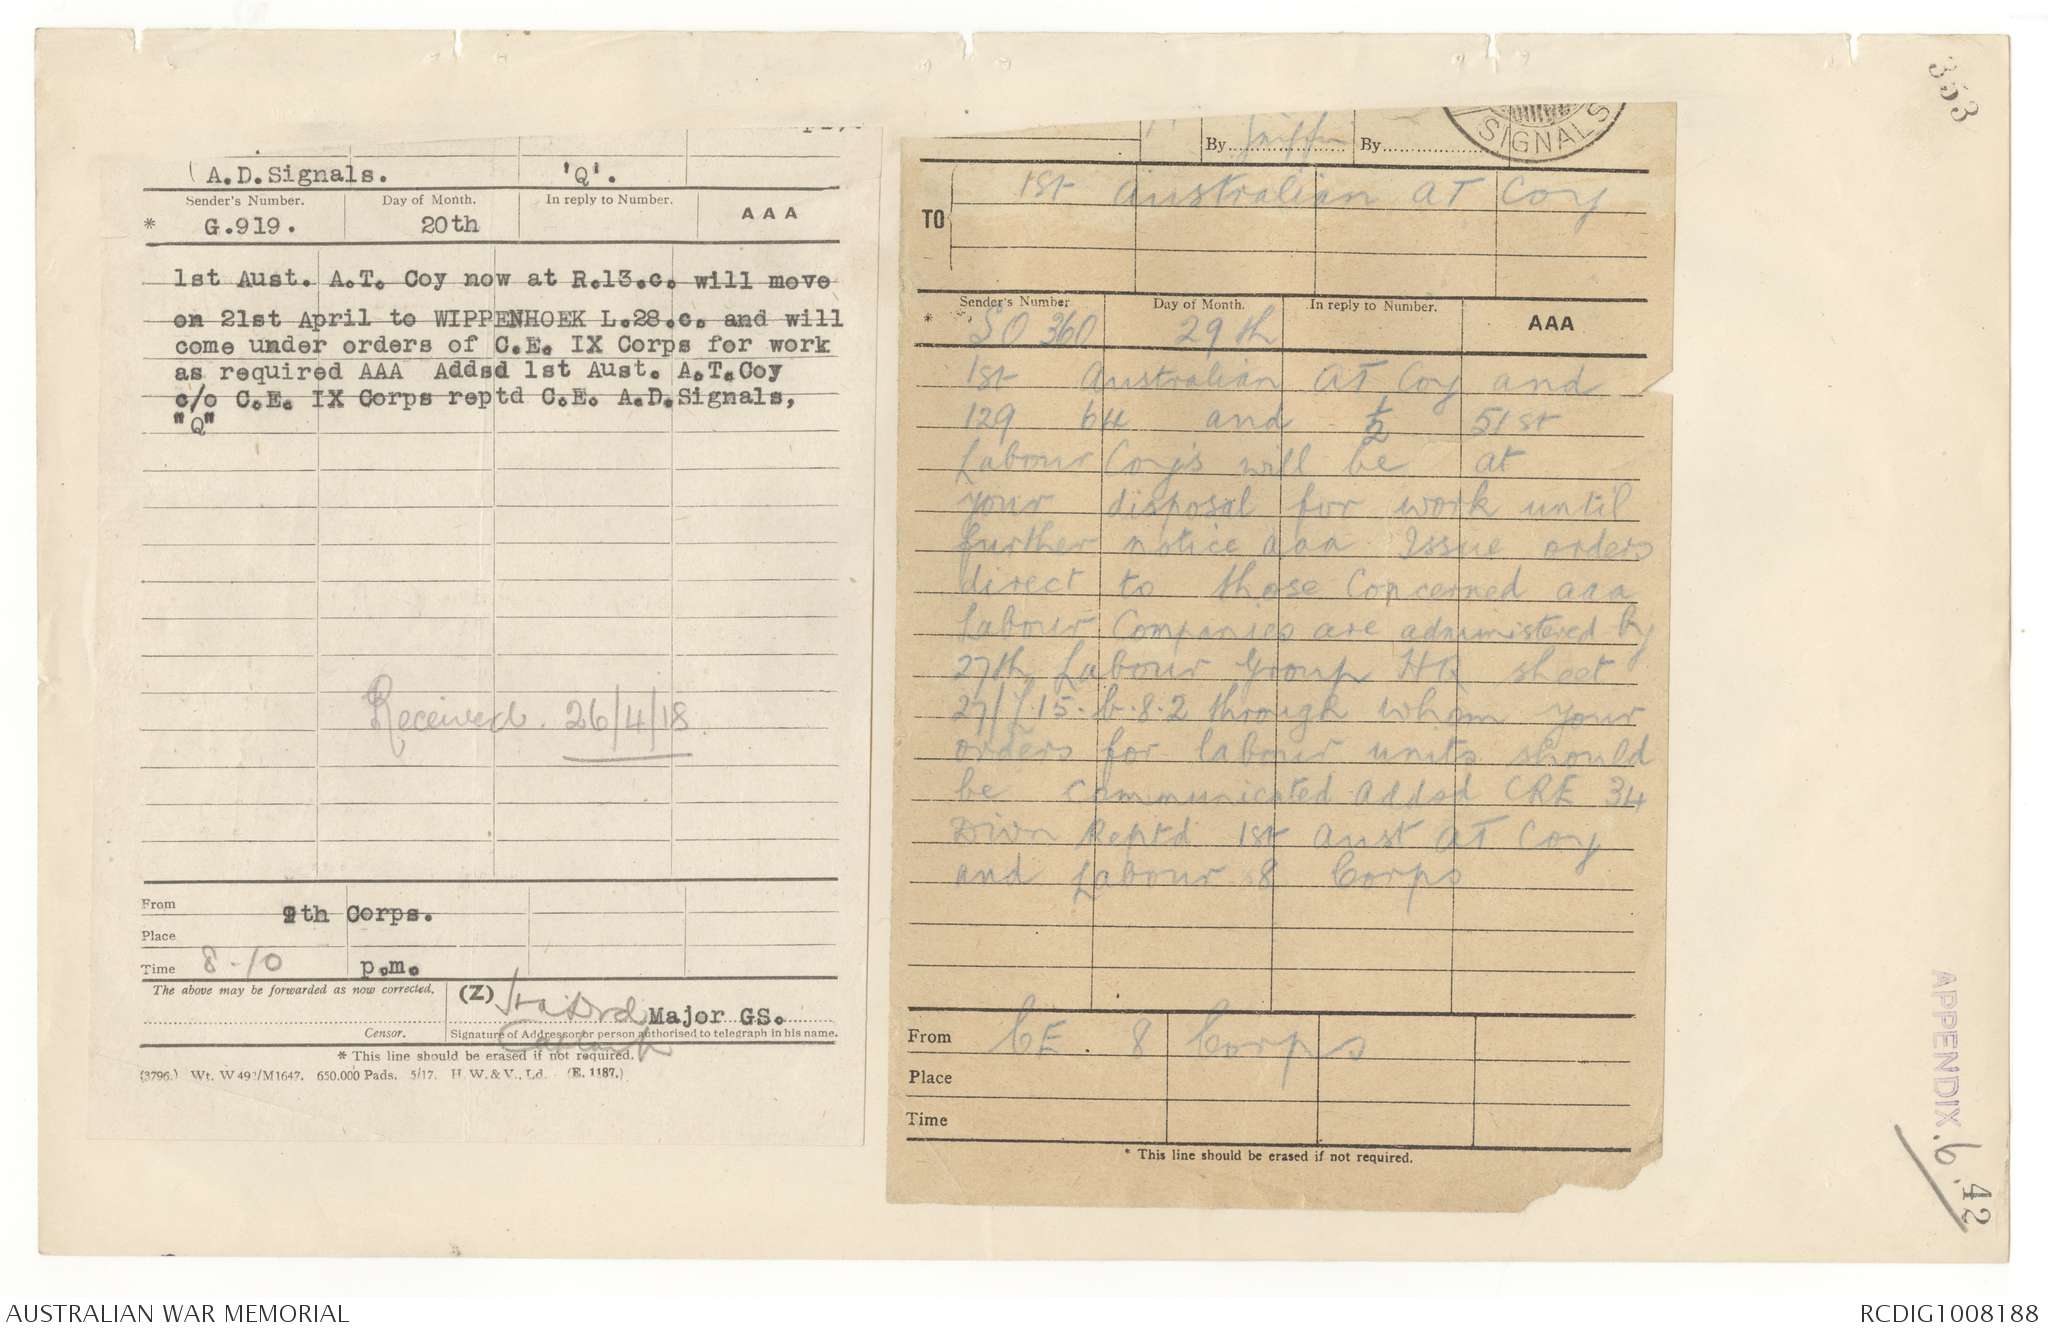 353
( A.D.Signals. 'Q'.
Sender's Number. Day of Month. In reply to Number. AAA
* G.919. 20th
1st Aust. A.T. Coy now at R.13.c. will move
on 21st April to WIPPENHOEK L.28.c. and will
come under orders of C.E. IX Corps for work
as required AAA Addsd 1st Aust. A.T.Coy
c/o C.E. IX Corps reptd C.E. A.D.Signals,
"Q"
Received. 26/4/18
From 9th Corps.
Place
Time 8-10 p.m.
The above may be forwarded as now corrected. (Z)
Major GS.
Censor. Signature of Addressor or person authorised to telegraph in his name.
* This line should be erased if not required.
(3796.) Wt. W492/M1647. 650.000 Pads. 5/17. H.W.&V., Ld. (E. 1187.)
By By
SIGNALS
TO 1st Australian AT Coy
Sender's Number Day of Month. In reply to Number. AAA
* SO 360 29th
1st Australian AT Coy and
129 64 and ½ 51st
Labour Coy's will be at
your disposal for work until
further notice aaa Issue orders
direct to those Concerned aaa
Labour Companies are administered by
27th Labour Group HR sheet
27/L.15.b.8.2 through whom your
orders for labour units should
be communicated Addsd CRE 34
Divn Reptd 1st Aust AT Coy
and Labour 8 Corps
From CE 8 Corps
Place
Time
* This line should be erased if not required.
APPENDIX. 6.
42
AUSTRALIAN WAR MEMORIAL RCDIG1008188